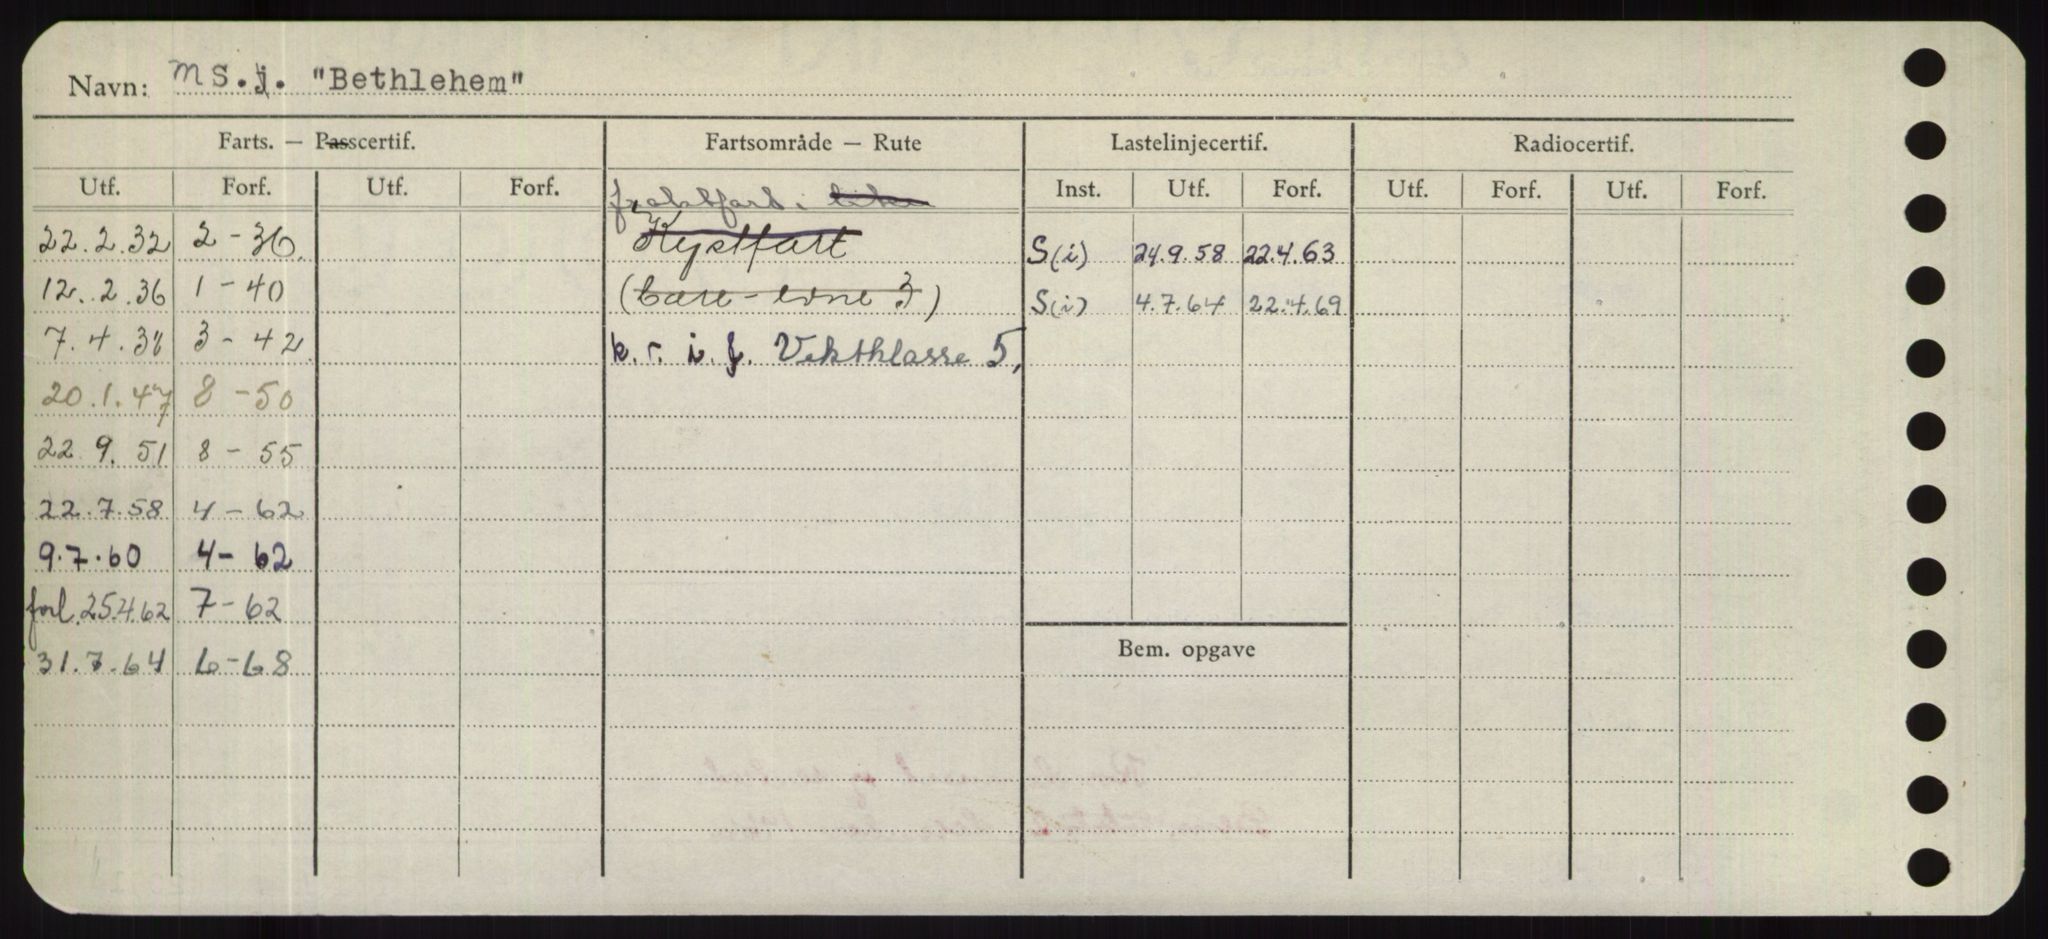 Navn: MS.j. "Bethlehem"
Farts. — Passcertif. Fartsområde — Rute Lastelinjecertif. Radiocertif.
Utf. Forf. Utf. Forf. Inst. Utf. Forf. Utf. Forf. Utf. Forf.
fraktfart i
22.2.32 2-36. Kystfart S(i) 24.9.58 22.4.63
12.2.36 1-40 (bære-evne 3) S(i) 4.7.64 22.4.69
7.4.38 3-42 k.r.i.f. Vektklasse 5,
20.1.47 8-50
22.9.51 8-55
22.7.58 4-62
9.7.60 4-62
forl. 25.4.62 7-62
31.7.64 6-68
Bem. opgave